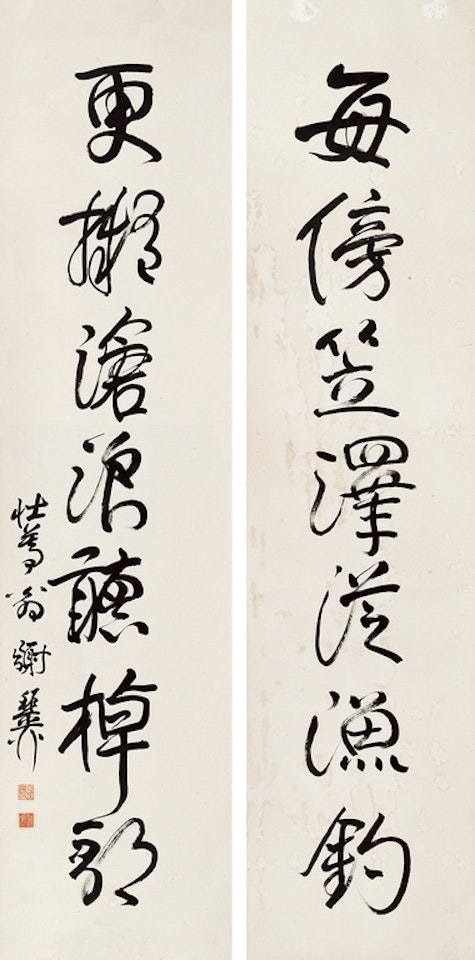 每傍笠澤從漁釣
更擬滄浪聽棹歌
翁謝